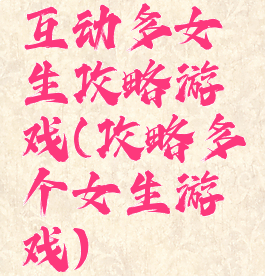 互动多女
生攻略游
戏(攻略多
个女生游
戏)